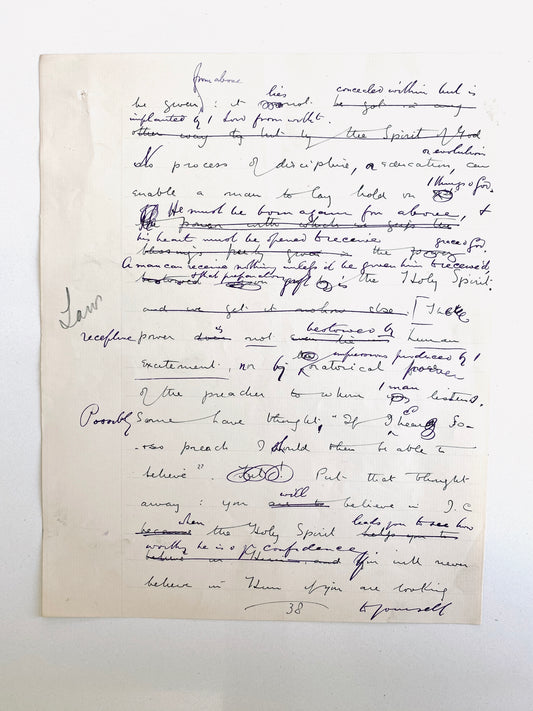 from above
lies concealed within but is
be given : it not be got in any
implanted by Lord from witht.
other way but by the Spirit of God
or evolution
No process of discipline, or education, can
enable a man to lay hold on things of God.
He must be born again from above, &
the power with which it grasps the
his heart must be opened to receive grace of God.
blessings freely given in the
A man can receive nothing unless it be given him to receive it,
bestowed & that preparation gift is the Holy Spirit
and we get it no how else. [The
Laws
receptive power is not bestowed by human
superviors produced by
excitement, nor by rhetorical power
of the preacher to whom man listens.
Possibly Some have thought, "If I heard So-
-&-so preach I should then be able to
believe". But! Put that thought
away : you will believe in J.C
when the Holy Spirit leads you to see how
because helps you to
worthy he is of confidence.
believe in Him. and You will never
believe in Him if you are looking
38 to yourself